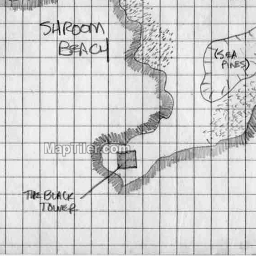 SHROOM
BEACH
(SEA
PINES)
MapTiler.com
THE BLACK
TOWER